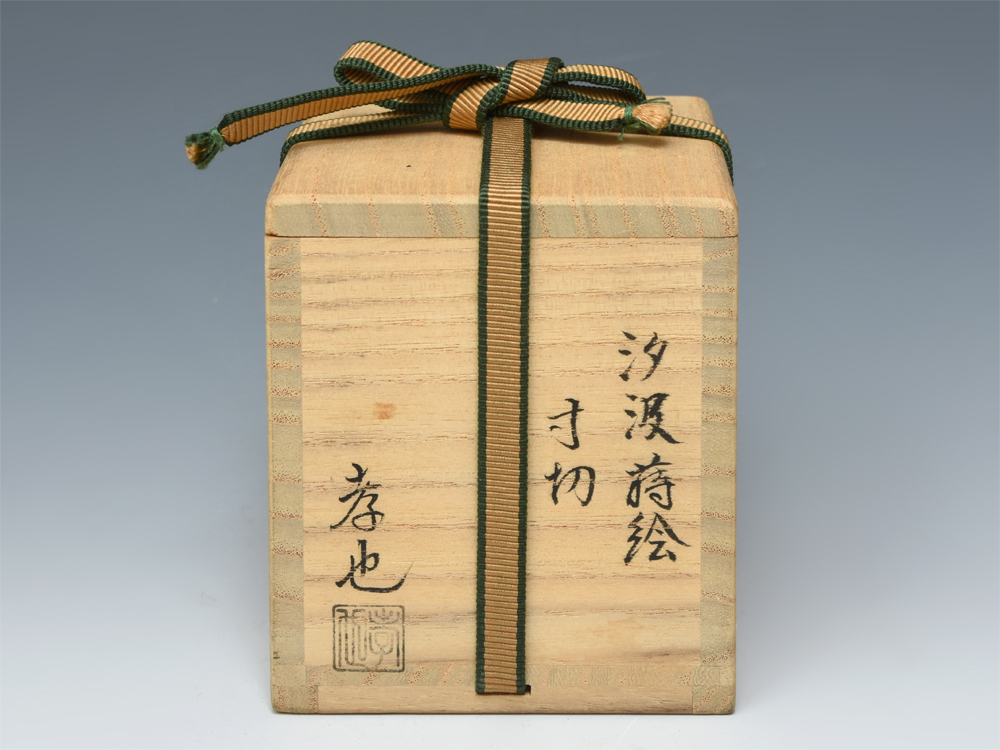 汐汲蒔絵
寸切
孝也
孝也